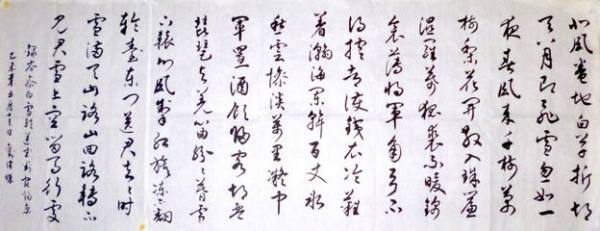 北風卷地白草折胡
天八月即飛雪忽如一
夜春風來千樹萬
樹梨花開散入珠簾
濕羅幕狐裘不暖錦
衾薄將軍角弓不
得控都護鐵衣冷難
着瀚海闌幹百丈冰
愁雲慘淡萬里凝中
軍置酒飲歸客胡琴
琵琶與羌笛紛紛暮雪
下轅門風掣紅旗凍不翻
輪臺東門送君去去時
雪滿天山路山回路轉不
見君雪上空留馬行處
錄岑參白雪歌送武判官歸京
乙未年五月十三日